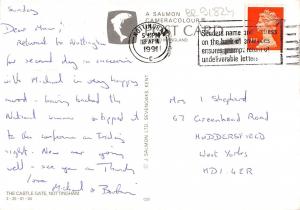 Sunday
Dear Mum,
Returned to Nottingham
for second day in succession
with Michael in very happy
mood - having backed the
National winner & tipped it
to the conference on Friday
night. Now are going
well - see you on Thursday
love
Michael & Barbara
THE CASTLE GATE, NOTTINGHAM
2-35-01-06
A SALMON
CAMERACOLOUR
POST CARD
ENGLAND
© J SALMON LTD. SEVENOAKS, KENT
NOTTINGHAM
APR
1991
C
Senders name and
on the back of
ensures prompt return of
undeliverable letters
Mrs I Shepherd
67 Greenhead Road
HUDDERSFIELD
West Yorks
HD1 4ER